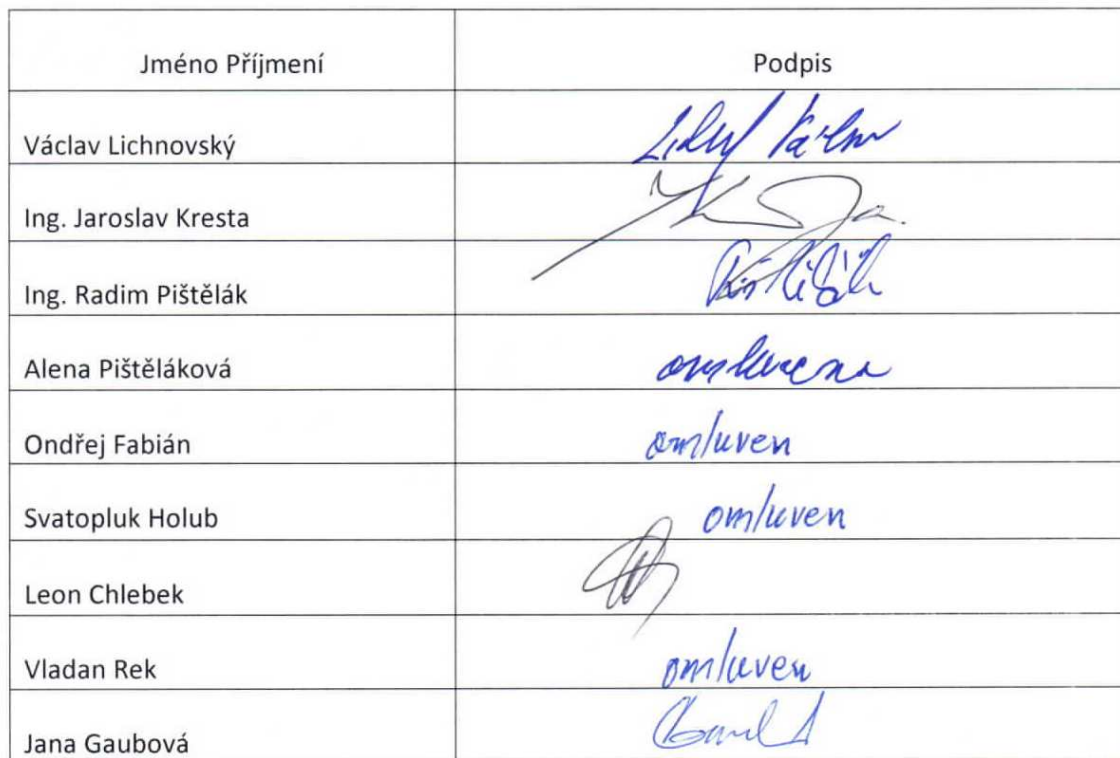 Jméno Příjmení Podpis
Václav Lichnovský
Ing. Jaroslav Kresta
Ing. Radim Pištělák
Alena Pištěláková omluvena
Ondřej Fabián omluven
Svatopluk Holub omluven
Leon Chlebek
Vladan Rek omluven
Jana Gaubová